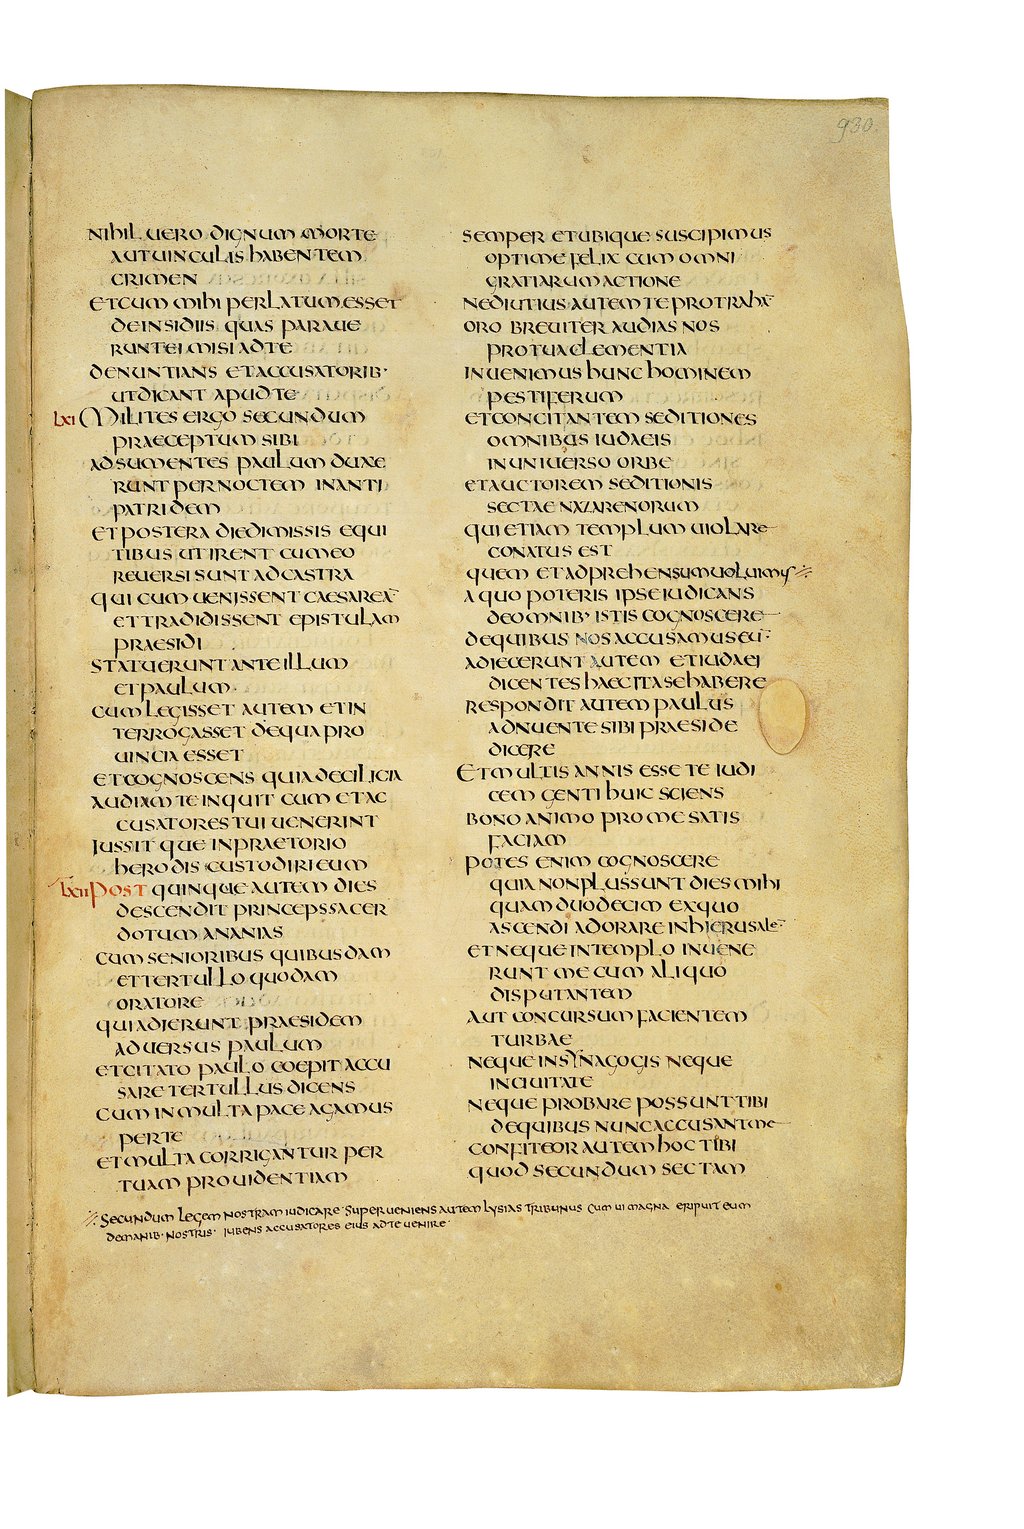 930.
NIHIL UERO DIGNUM MORTE
AUT UINCULIS HABENTEM
CRIMEN
ET CUM MIHI PERLATUM ESSET
DE INSIDIIS QUAS PARAUE
RUNT EI MISI AD TE
DENUNTIANS ET ACCUSATORIB·
UT DICANT APUD TE
LXI MILITES ERGO SECUNDUM
PRAECEPTUM SIBI
ADSUMENTES PAULUM DUXE
RUNT PER NOCTEM IN ANTI
PATRIDEM
ET POSTERA DIE DIMISSIS EQUI
TIBUS UT IRENT CUM EO
REUERSI SUNT AD CASTRA
QUI CUM UENISSENT CAESAREĀ
ET TRADIDISSENT EPISTULAM
PRAESIDI
STATUERUNT ANTE ILLUM
ET PAULUM
CUM LEGISSET AUTEM ET IN
TERROGASSET DE QUA PRO
UINCIA ESSET
ET COGNOSCENS QUIA DE CILICIA
AUDIAM TE INQUIT CUM ET AC
CUSATORES TUI UENERINT
IUSSITQUE IN PRAETORIO
HERODIS CUSTODIRI EUM
LXII POST QUINQUE AUTEM DIES
DESCENDIT PRINCEPS SACER
DOTUM ANANIAS
CUM SENIORIBUS QUIBUSDAM
ET TERTULLO QUODAM
ORATORE
QUI ADIERUNT PRAESIDEM
ADUERSUS PAULUM
ET CITATO PAULO COEPIT ACCU
SARE TERTULLUS DICENS
CUM IN MULTA PACE AGAMUS
PER TE
ET MULTA CORRIGANTUR PER
TUAM PROUIDENTIAM
SEMPER ET UBIQUE SUSCIPIMUS
OPTIME FELIX CUM OMNI
GRATIARUM ACTIONE
NE DIUTIUS AUTEM TE PROTRAHĀ
ORO BREUITER AUDIAS NOS
PRO TUA CLEMENTIA
INUENIMUS HUNC HOMINEM
PESTIFERUM
ET CONCITANTEM SEDITIONES
OMNIBUS IUDAEIS
IN UNIUERSO ORBE
ET AUCTOREM SEDITIONIS
SECTAE NAZARENORUM
QUI ETIAM TEMPLUM UIOLARE
CONATUS EST
QUEM ET ADPREHENSUM UOLUIMUS
A QUO POTERIS IPSE IUDICANS
DE OMNIB· ISTIS COGNOSCERE
DE QUIBUS NOS ACCUSAMUS EŪ·
ADIECERUNT AUTEM ET IUDAEI
DICENTES HAEC ITA SE HABERE
RESPONDIT AUTEM PAULUS
ADNUENTE SIBI PRAESIDE
DICERE
EX MULTIS ANNIS ESSE TE IUDI
CEM GENTI HUIC SCIENS
BONO ANIMO PRO ME SATIS
FACIAM
POTES ENIM COGNOSCERE
QUIA NON PLUS SUNT DIES MIHI
QUAM DUODECIM EX QUO
ASCENDI ADORARE IN HIERUSALĒ·
ET NEQUE IN TEMPLO INUENE
RUNT ME CUM ALIQUO
DISPUTANTEM
AUT CONCURSUM FACIENTEM
TURBAE
NEQUE IN SYNAGOGIS NEQUE
IN CIUITATE
NEQUE PROBARE POSSUNT TIBI
DE QUIBUS NUNC ACCUSANT ME
CONFITEOR AUTEM HOC TIBI
QUOD SECUNDUM SECTAM
SECUNDUM LEGEM NOSTRAM IUDICARE· SUPERUENIENS AUTEM LYSIAS TRIBUNUS CUM UI MAGNA ERIPUIT EUM
DE MANIB· NOSTRIS· IUBENS ACCUSATORES EIUS AD TE UENIRE·